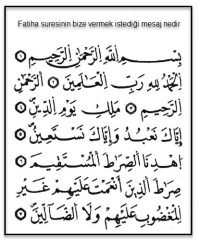 Fatiha suresinin bize vermek istediği mesaj nedir
بِسْمِ اللَّهِ الرَّحْمٰنِ الرَّحِيمِ
اَلْحَمْدُ لِلَّهِ رَبِّ الْعَالَمِينَ ۝ اَلرَّحْمٰنِ
الرَّحِيمِ ۝ مَالِكِ يَوْمِ الدِّينِ ۝
إِيَّاكَ نَعْبُدُ وَإِيَّاكَ نَسْتَعِينُ ۝
اِهْدِنَا الصِّرَاطَ الْمُسْتَقِيمَ ۝
صِرَاطَ الَّذِينَ أَنْعَمْتَ عَلَيْهِمْ غَيْرِ
الْمَغْضُوبِ عَلَيْهِمْ وَلَا الضَّالِّينَ ۝